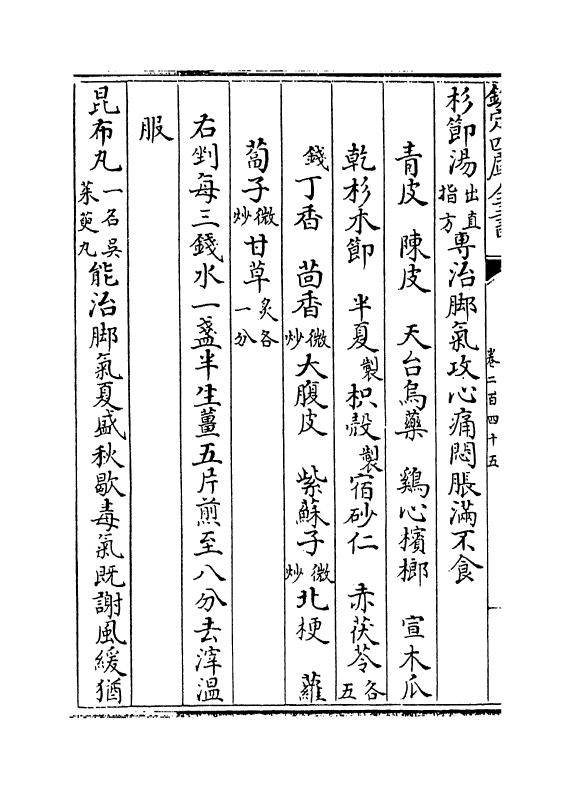 欽定四庫全書
卷二百四十五
杉節湯出直指方專治脚氣攻心痛悶脹滿不食
青皮 陳皮 天台烏藥 鷄心檳榔 宣木瓜
乾杉木節 半夏製枳殼製宿砂仁 赤茯苓各五
錢丁香 茴香微炒大腹皮 紫蘇子微炒北梗 蘿
蔔子微炒甘草炙各一分
右剉每三錢水一盞半生薑五片煎至八分去滓温
服
昆布丸一名吳茱萸丸能治脚氣夏盛秋歇毒氣既謝風緩猶